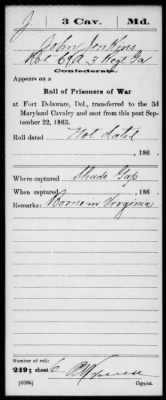 J | 3 Cav. | Md.
John Jenkins
Pvt Co A, 3 Regt Ga
Confederate.
Appears on a
Roll of Prisoners of War
at Fort Delaware, Del., transferred to the 3d
Maryland Cavalry and sent from this post Sep-
tember 22, 1863.
Roll dated Not dated
, 186 .
Where captured Shade Gap
When captured , 186 .
Remarks: Born in Virginia
Number of roll:
249; sheet 6
(639b) Copyist.